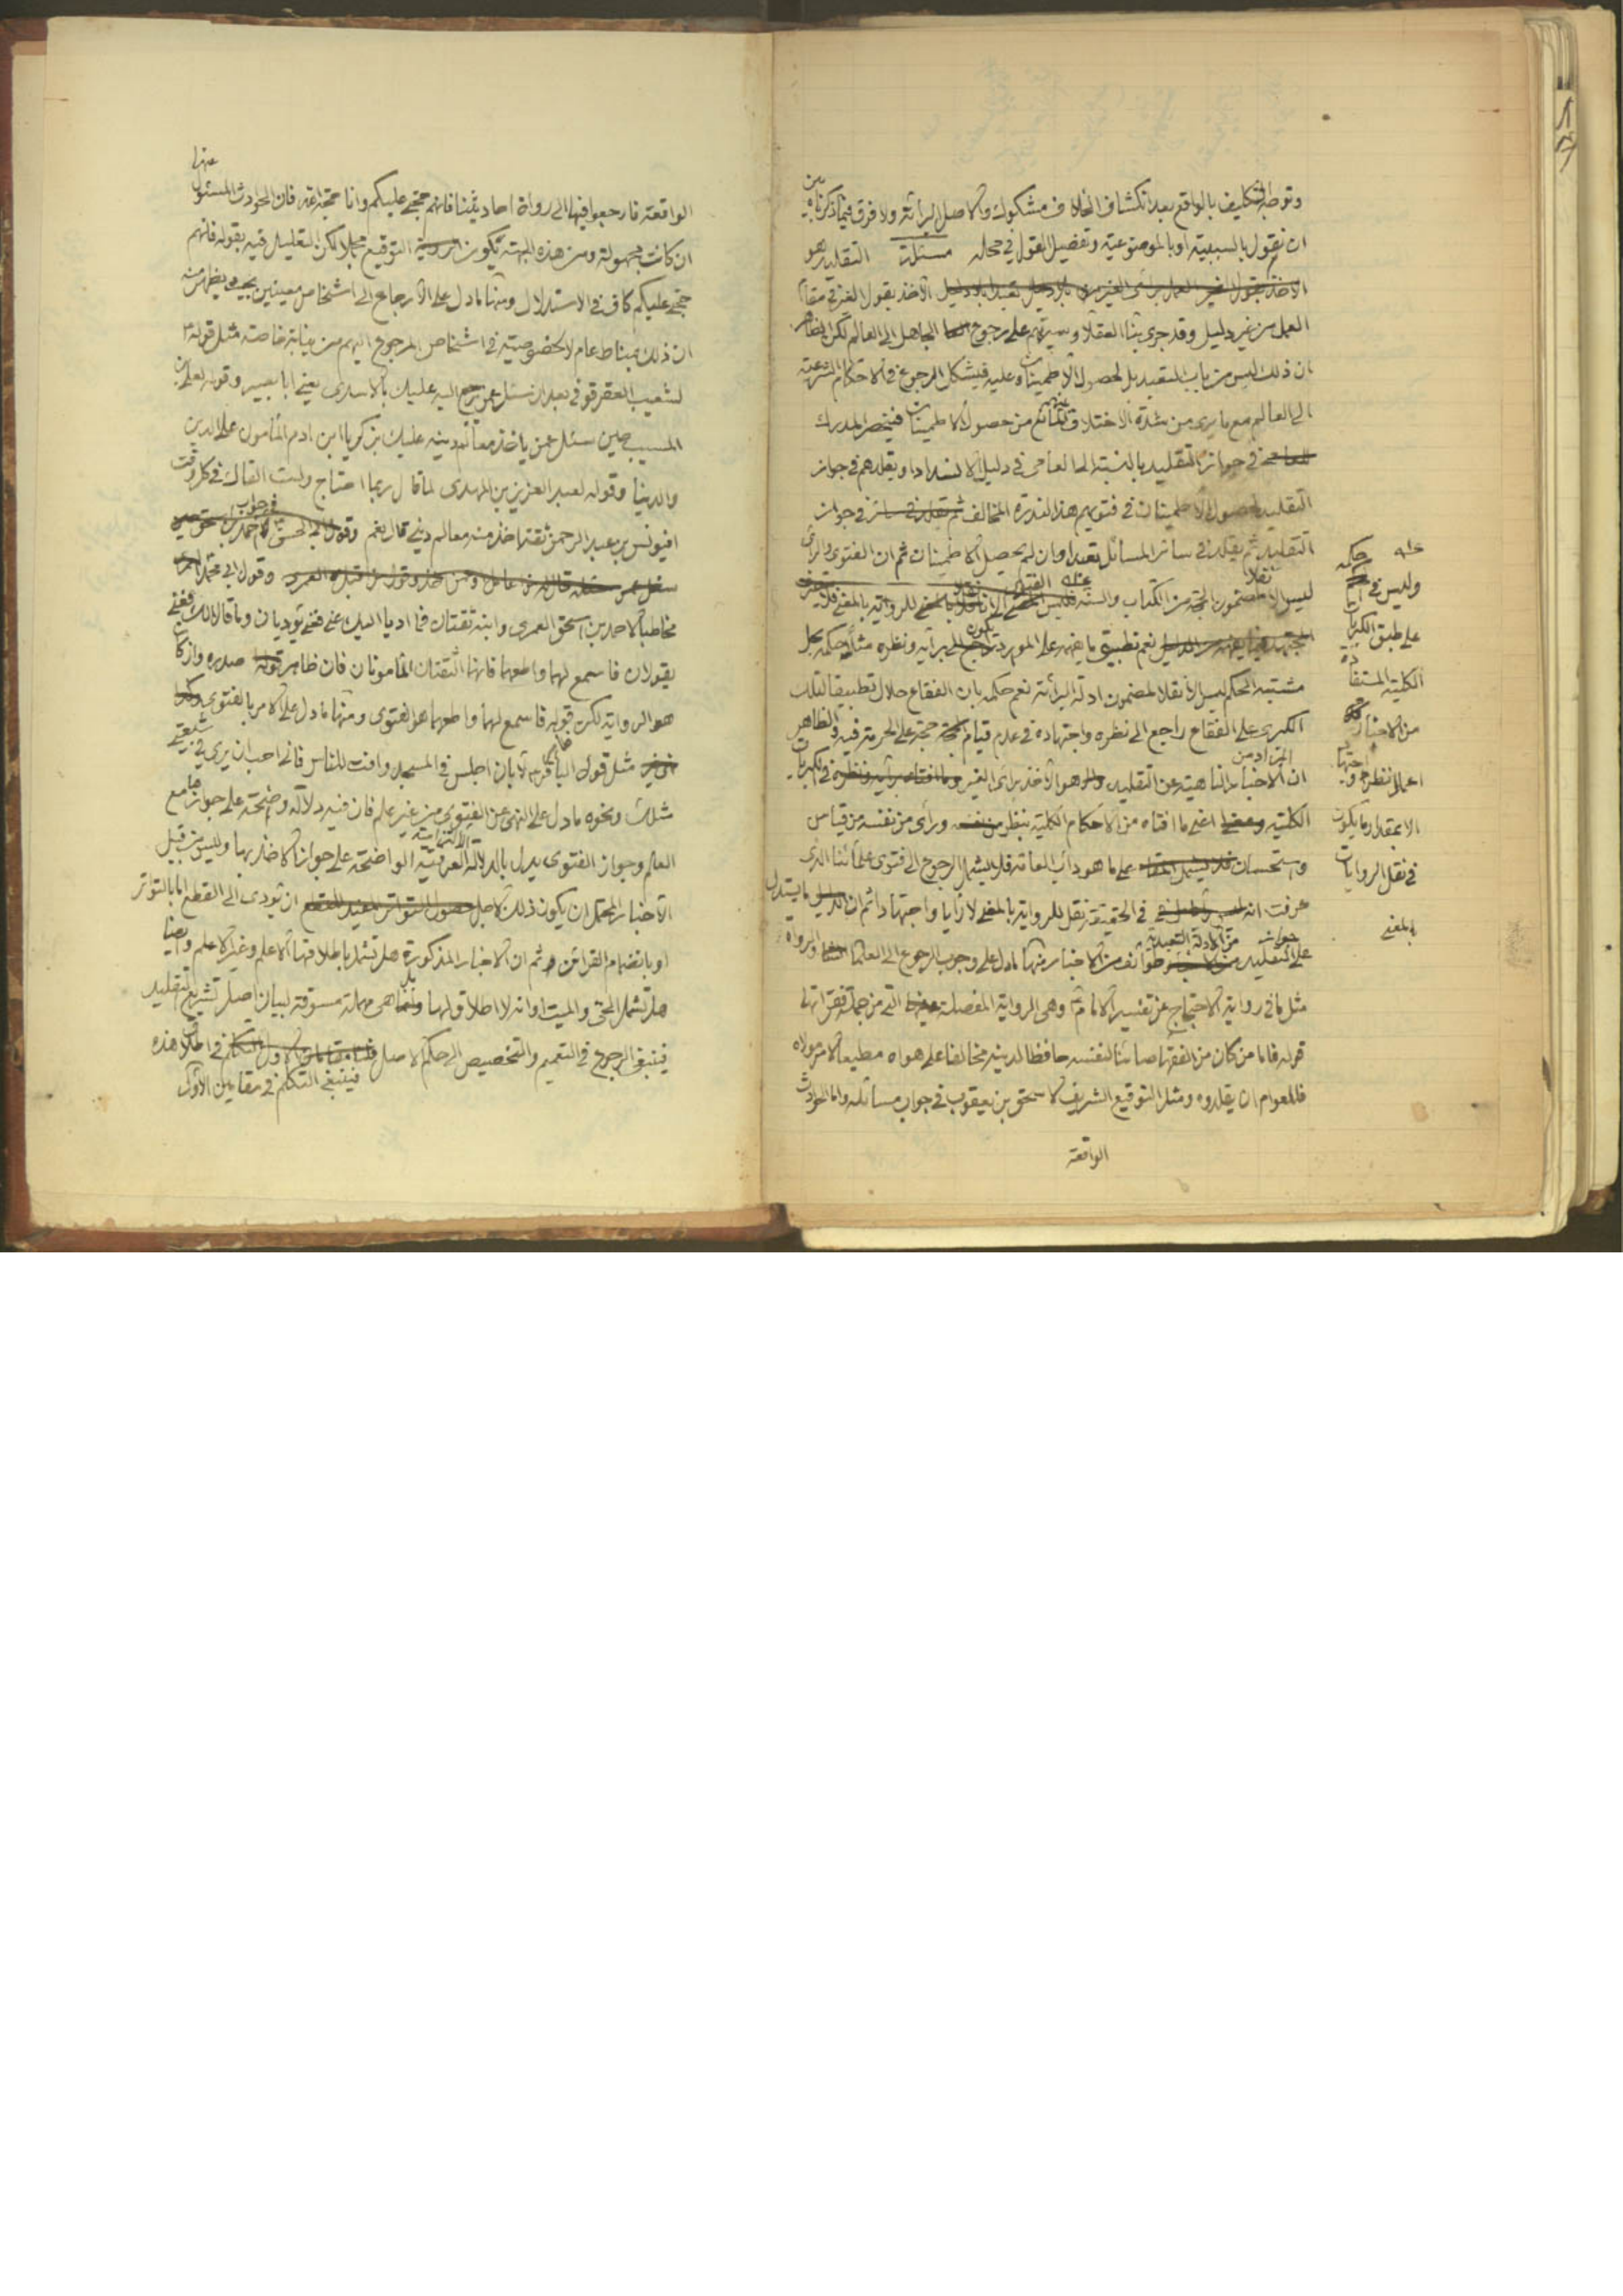 وتوجه التكليف بالواقع بعد انكشاف الخلاف مشكوك والاصل البرائة ولا فرق فيما ذكرناه بين
ان نقول بالسببية او بالموضوعية وتفضيل القول في محله مسئلة التقليد هو
الاخذ بقول الغير في مقام
العمل من غير دليل وقد جرى بناء العقلاء وسيرتهم على رجوع الجاهل الى العالم لكن الظاهر
ان ذلك ليس من باب التعبد بل لحصول الاطمينان وعليه فيشكل الرجوع في الاحكام الشرعية
الى العالم مع ما يرى من شدة الاختلاف المانع من حصول الاطمينان فينحصر المدرك
في جواز التقليد بالنسبة الى العامى في دليل الانسداد او يقلدهم في جواز
التقليد لحصول الاطمينان في فتويهم هذا لندرة المخالف في جواز
التقليد ثم يقلد في سائر المسائل تعبدا وان لم يحصل الاطمينان ثم ان الفتوى والرأى
ليس الا نقلا لمضمون الحجة من الكتاب والسنة للرواية بالمعنى
نعم تطبيق ما يفهمه على المورد راجع الى برأيه ونظره مثلا حكمه بحل
مشتبه الحكم ليس الا نقلا لمضمون ادلة البرائة نعم حكمه بان الفقاع حلال تطبيقا لتلك
الكبرى على الفقاع راجع الى نظره واجتهاده في عدم قيام حجة على الحرمة فيه والظاهر
ان المراد من الاخبار الناهية عن التقليد هو الاخذ برأى الغير في الكبريات
الكلية اعنى ما افتاه من الاحكام الكلية بنظر ورأى من نفسه من قياس
واستحسان على ما هو دأب العامة فلا يشمل الرجوع الى فتوى علمائنا الذى
عرفت انه في الحقيقة نقل للرواية بالمعنى لا رأيا واجتهادا ثم ان ما يستدل
على جواز التقليد من الادلة التعبدية طوائف من الاخبار منها ما دل على وجوب الرجوع الى العلماء او الرواة
مثل ما في رواية الاحتجاج عن تفسير الامام وهى الرواية المفصلة التى من جملة فقراتها
قوله فاما من كان من الفقهاء صائنا لنفسه حافظا لدينه مخالفا على هواه مطيعا لامر مولاه
فللعوام ان يقلدوه ومثل التوقيع الشريف لاسحق بن يعقوب في جواب مسائله واما الحوادث
الواقعة
وليس في حكمه
على طبق الكبريات
الكلية المستفادة
من الاخبار
اعمال نظر واجتهاد
الا بمقدار ما يكون
في نقل الروايات
بالمعنى
الواقعة فارجعوا فيها الى رواة احاديثنا فانهم حجتى عليكم وانا حجة الله فان الحوادث المسئول عنها
ان كانت مجهولة ومن هذه الجهة يكون التوقيع مجملا لكن التعليل فيه بقوله فانهم
حجتى عليكم كاف في الاستدلال ومنها ما دل على الارجاع الى اشخاص معينين بحيث يظهر منه
ان ذلك بمناط عام لا لخصوصية في اشخاص المرجوع اليهم من نيابة خاصة مثل قوله
لشعيب العقرقوفى بعد ان سئل عمن يرجع اليه عليك بالاسدى يعنى ابا بصير وقوله لعلى بن
المسيب حين سئل عمن ياخذ معالم دينه عليك بزكريا ابن ادم المأمون على الدين
والدنيا وقوله لعبد العزيز بن المهدى لما قال ربما احتاج ولست القاك في كل وقت
افيونس بن عبد الرحمن ثقة اخذ منه معالم دينى قال نعم
وقول ابى محمد
مخاطبا لاحمد بن اسحق العمرى وابنه ثقتان فما اديا اليك عنى فعنى يؤديان وما قالا لك فعنى
يقولان فاسمع لهما واطعهما فانهما الثقتان المأمونان فان ظاهر صدره وان كان
هو الرواية لكن قوله فاسمع لهما واطعهما هو الفتوى ومنها ما دل على الامر بالفتوى
مثل قول الباقر لابان اجلس في المسجد وافت للناس فانى احب ان يرى في شيعتى
مثلك ونحوه ما دل على النهى عن الفتوى من غير علم فان فيه دلالة واضحة على جوازها مع
العلم وجواز الفتوى يدل بالدلالة الالتزامية العرفية الواضحة على جواز الاخذ بها وليس من قبيل
الاخبار المحتمل ان يكون ذلك لاجل ان تؤدى الى القطع اما بالتواتر
او بانضمام القرائن ثم ان الاخبار المذكورة هل تشمل باطلاقها الاعلم وغير الاعلم وايضا
هل تشمل الحى والميت او انه لا اطلاق لها بل هى مهملة مسوقة لبيان اصل تشريع التقليد
فينبغى الرجوع في التعميم والتخصيص الى حكم الاصل
فينبغى التكلم في مقامين الاول في اطلاق هذه